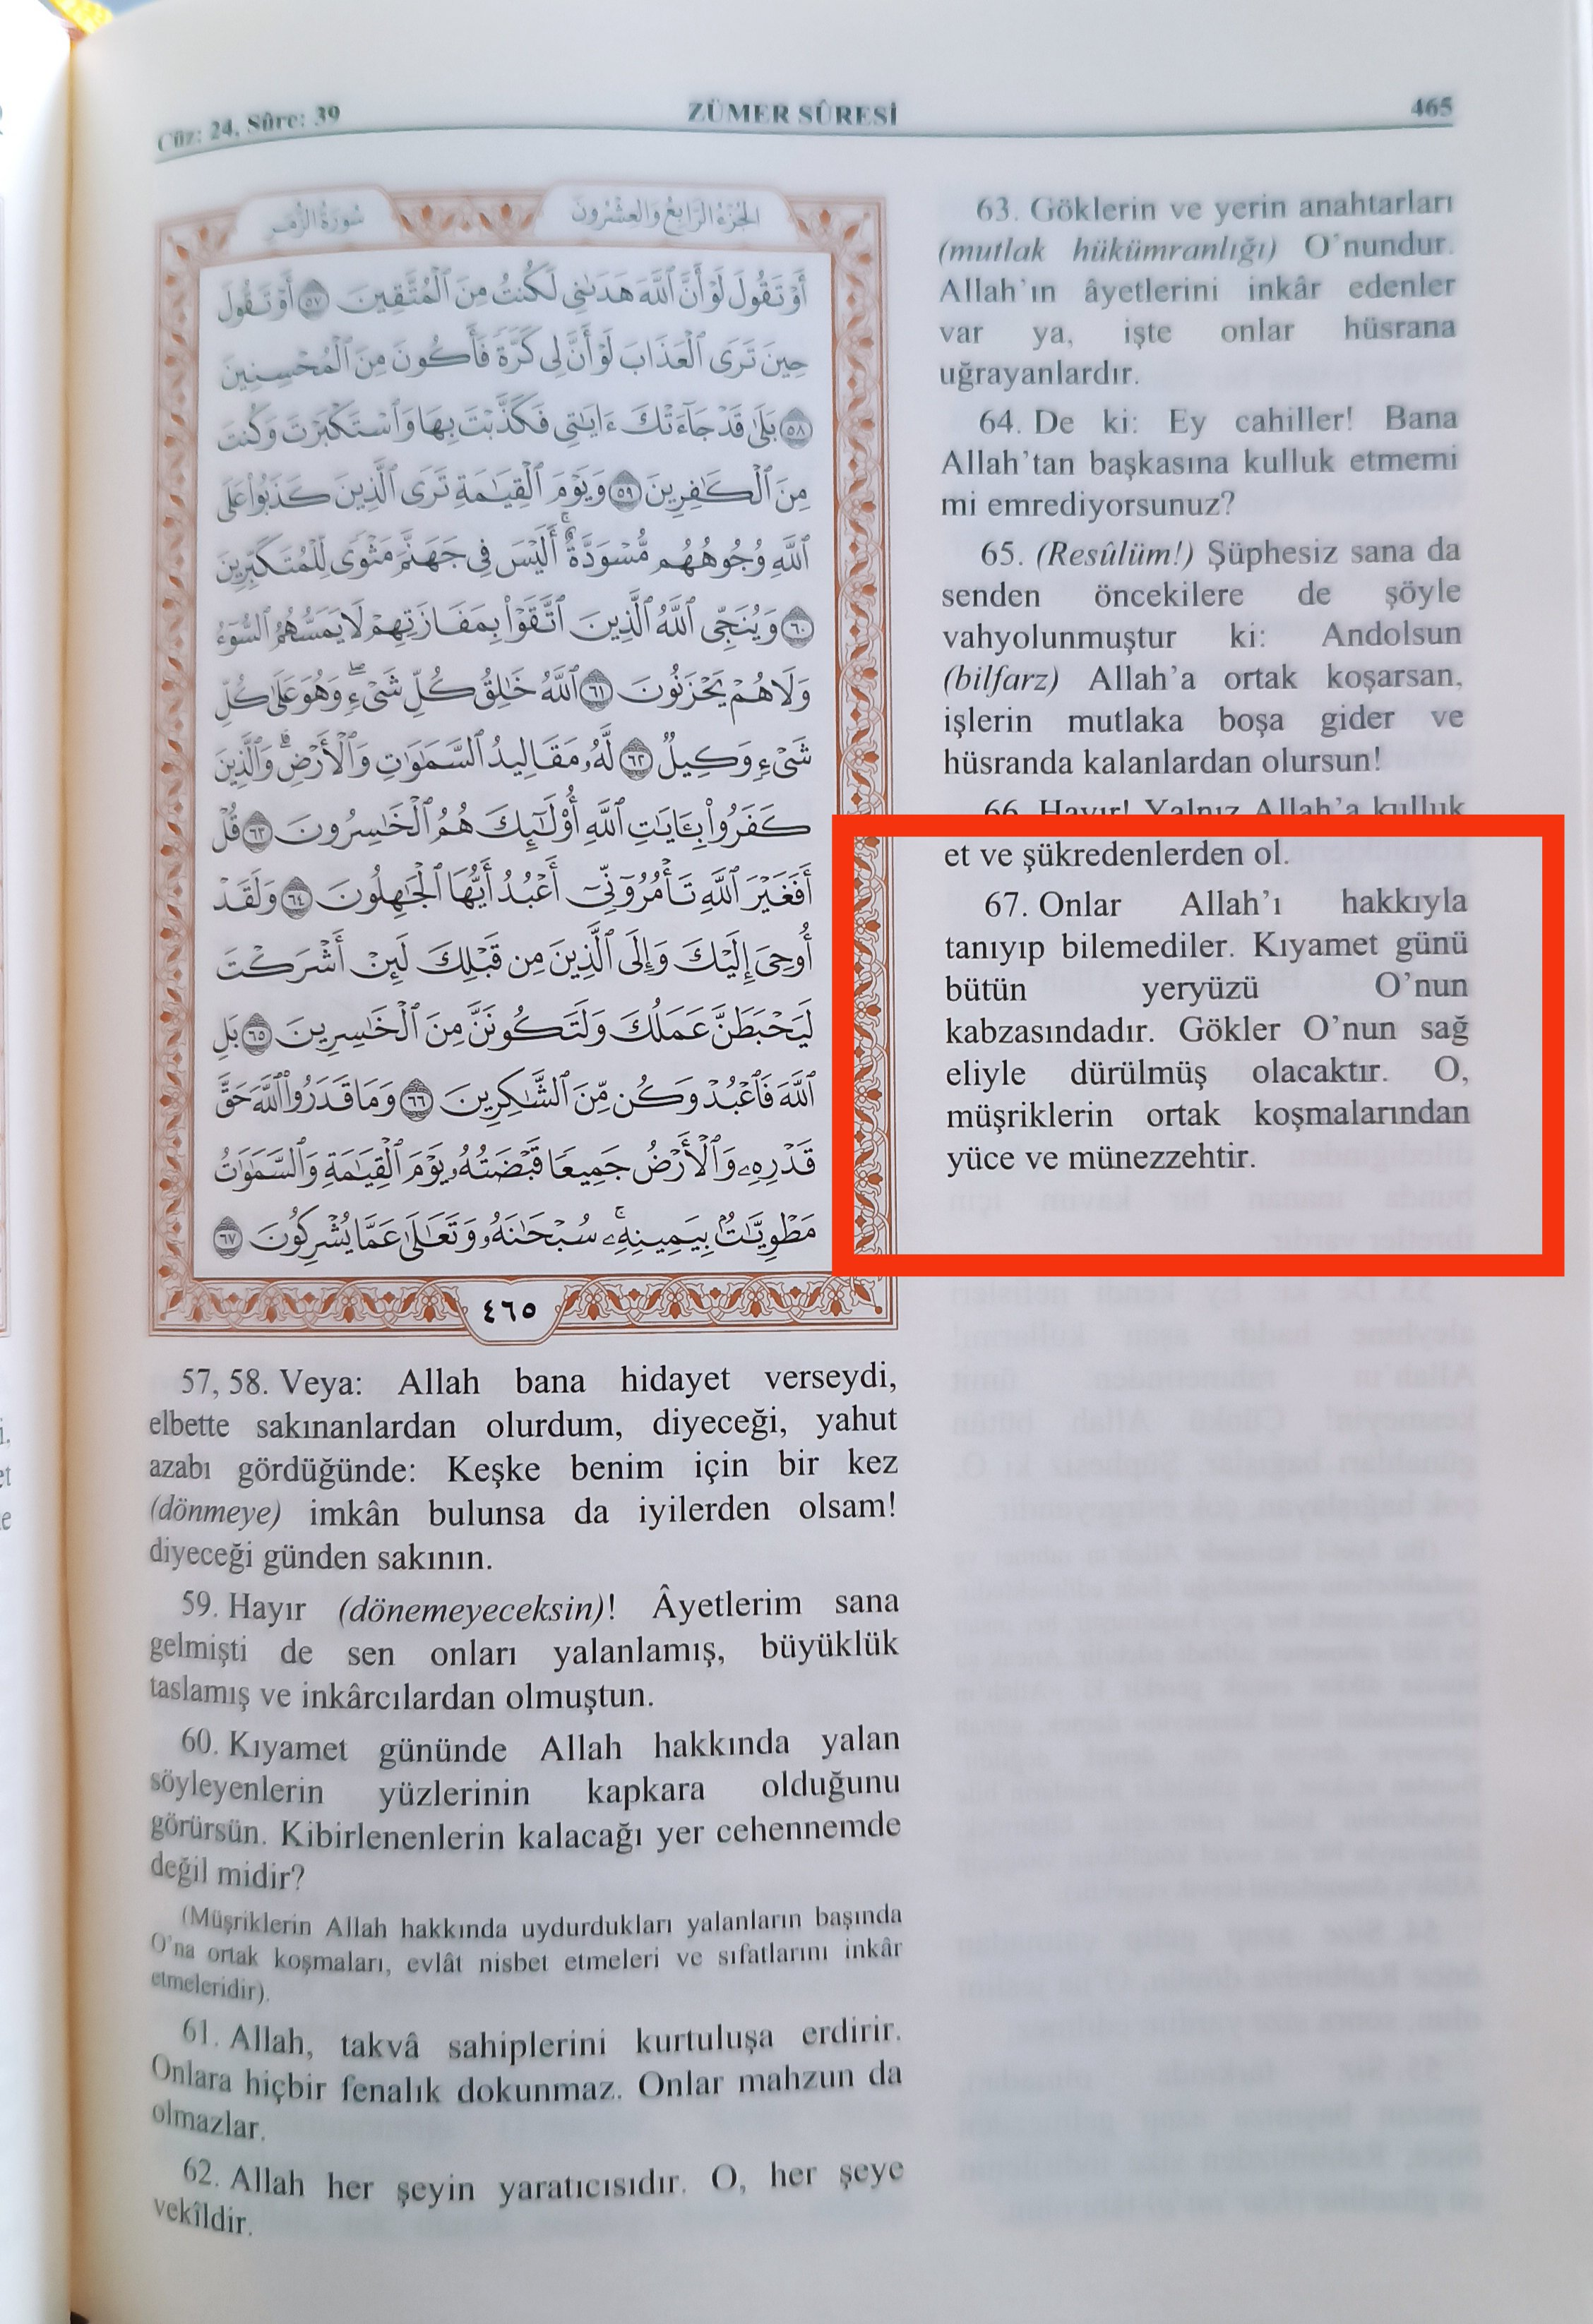 Cüz: 24, Sûre: 39
ZÜMER SÛRESİ
465
سُورَةُ الزُّمَرِ
الجُزْءُ الرَّابِعُ وَالعِشْرُونَ
أَوْ تَقُولَ لَوْ أَنَّ ٱللَّهَ هَدَىٰنِي لَكُنتُ مِنَ ٱلْمُتَّقِينَ ٥٧ أَوْ تَقُولَ
حِينَ تَرَى ٱلْعَذَابَ لَوْ أَنَّ لِي كَرَّةً فَأَكُونَ مِنَ ٱلْمُحْسِنِينَ
٥٨ بَلَىٰ قَدْ جَآءَتْكَ ءَايَٰتِي فَكَذَّبْتَ بِهَا وَٱسْتَكْبَرْتَ وَكُنتَ
مِنَ ٱلْكَٰفِرِينَ ٥٩ وَيَوْمَ ٱلْقِيَٰمَةِ تَرَى ٱلَّذِينَ كَذَبُوا۟ عَلَى
ٱللَّهِ وُجُوهُهُم مُّسْوَدَّةٌ ۚ أَلَيْسَ فِي جَهَنَّمَ مَثْوًى لِّلْمُتَكَبِّرِينَ
٦٠ وَيُنَجِّي ٱللَّهُ ٱلَّذِينَ ٱتَّقَوْا۟ بِمَفَازَتِهِمْ لَا يَمَسُّهُمُ ٱلسُّوٓءُ
وَلَا هُمْ يَحْزَنُونَ ٦١ ٱللَّهُ خَٰلِقُ كُلِّ شَيْءٍ ۖ وَهُوَ عَلَىٰ كُلِّ
شَيْءٍ وَكِيلٌ ٦٢ لَّهُۥ مَقَالِيدُ ٱلسَّمَٰوَٰتِ وَٱلْأَرْضِ ۗ وَٱلَّذِينَ
كَفَرُوا۟ بِـَٔايَٰتِ ٱللَّهِ أُو۟لَٰٓئِكَ هُمُ ٱلْخَٰسِرُونَ ٦٣ قُلْ
أَفَغَيْرَ ٱللَّهِ تَأْمُرُوٓنِّيٓ أَعْبُدُ أَيُّهَا ٱلْجَٰهِلُونَ ٦٤ وَلَقَدْ
أُوحِيَ إِلَيْكَ وَإِلَى ٱلَّذِينَ مِن قَبْلِكَ لَئِنْ أَشْرَكْتَ
لَيَحْبَطَنَّ عَمَلُكَ وَلَتَكُونَنَّ مِنَ ٱلْخَٰسِرِينَ ٦٥ بَلِ
ٱللَّهَ فَٱعْبُدْ وَكُن مِّنَ ٱلشَّٰكِرِينَ ٦٦ وَمَا قَدَرُوا۟ ٱللَّهَ حَقَّ
قَدْرِهِۦ وَٱلْأَرْضُ جَمِيعًا قَبْضَتُهُۥ يَوْمَ ٱلْقِيَٰمَةِ وَٱلسَّمَٰوَٰتُ
مَطْوِيَّٰتٌۢ بِيَمِينِهِۦ ۚ سُبْحَٰنَهُۥ وَتَعَٰلَىٰ عَمَّا يُشْرِكُونَ ٦٧
٤٦٥
57, 58. Veya: Allah bana hidayet verseydi,
elbette sakınanlardan olurdum, diyeceği, yahut
azabı gördüğünde: Keşke benim için bir kez
(dönmeye) imkân bulunsa da iyilerden olsam!
diyeceği günden sakının.
59. Hayır (dönemeyeceksin)! Âyetlerim sana
gelmişti de sen onları yalanlamış, büyüklük
taslamış ve inkârcılardan olmuştun.
60. Kıyamet gününde Allah hakkında yalan
söyleyenlerin yüzlerinin kapkara olduğunu
görürsün. Kibirlenenlerin kalacağı yer cehennemde
değil midir?
(Müşriklerin Allah hakkında uydurdukları yalanların başında
O'na ortak koşmaları, evlât nisbet etmeleri ve sıfatlarını inkâr
etmeleridir).
61. Allah, takvâ sahiplerini kurtuluşa erdirir.
Onlara hiçbir fenalık dokunmaz. Onlar mahzun da
olmazlar.
62. Allah her şeyin yaratıcısıdır. O, her şeye
vekîldir.
63. Göklerin ve yerin anahtarları
(mutlak hükümranlığı) O'nundur.
Allah'ın âyetlerini inkâr edenler
var ya, işte onlar hüsrana
uğrayanlardır.
64. De ki: Ey cahiller! Bana
Allah'tan başkasına kulluk etmemi
mi emrediyorsunuz?
65. (Resûlüm!) Şüphesiz sana da
senden öncekilere de şöyle
vahyolunmuştur ki: Andolsun
(bilfarz) Allah'a ortak koşarsan,
işlerin mutlaka boşa gider ve
hüsranda kalanlardan olursun!
66. Hayır! Yalnız Allah'a kulluk
et ve şükredenlerden ol.
67. Onlar Allah'ı hakkıyla
tanıyıp bilemediler. Kıyamet günü
bütün yeryüzü O'nun
kabzasındadır. Gökler O'nun sağ
eliyle dürülmüş olacaktır. O,
müşriklerin ortak koşmalarından
yüce ve münezzehtir.